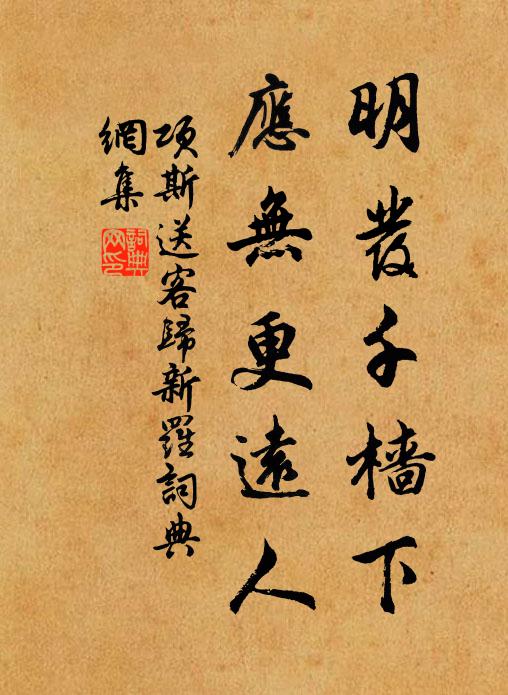 明發千檣下
應無更遠人
項斯送客歸新羅詞典
網集
詞典網印